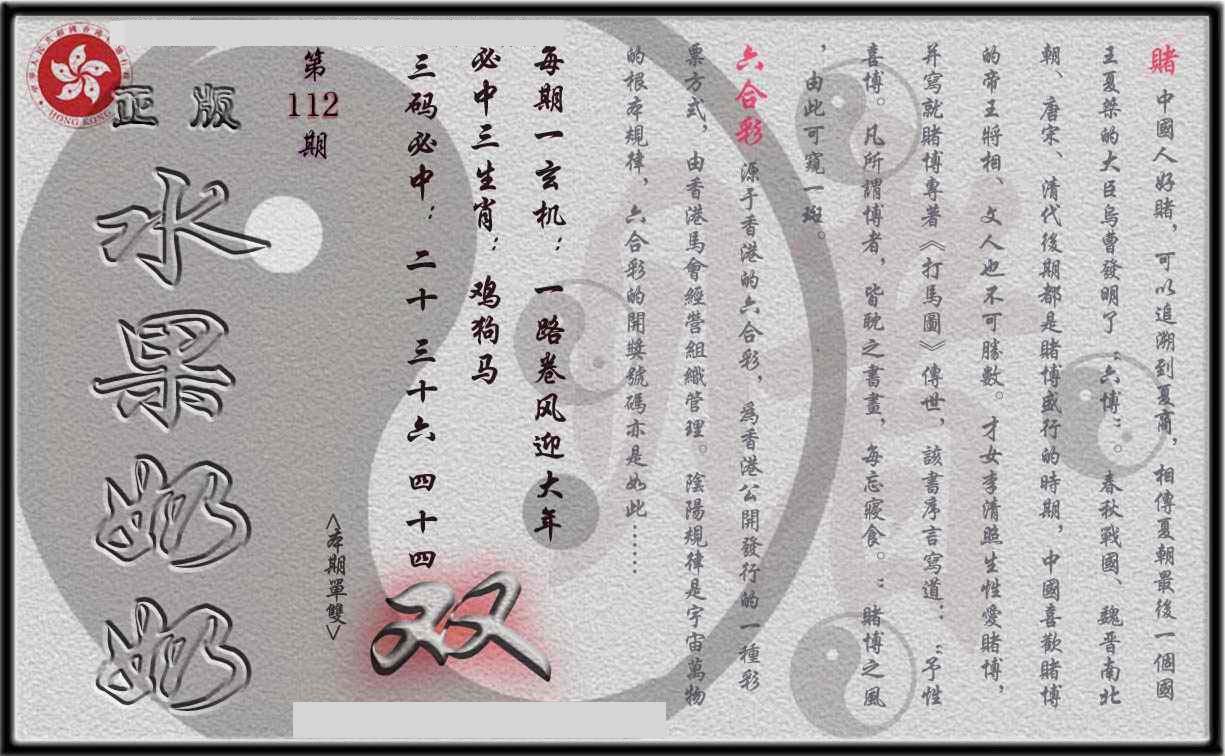 賭 中國人好賭，可以追溯到夏商，相傳夏朝最後一個國
王夏桀的大臣烏曹發明了“六博”。春秋戰國、魏晋南北
朝、唐宋、清代後期都是賭博盛行的時期，中國喜歡賭博
的帝王將相、文人也不可勝數。才女李清照生性愛賭博，
并寫就賭博專著《打馬圖》傳世，該書序言寫道：“予性
喜博。凡所謂博者，皆耽之書畫，每忘寢食。”賭博之風
，由此可窺一斑。
六合彩 源于香港的六合彩，為香港公開發行的一種彩
票方式，由香港馬會經營組織管理。陰陽規律是宇宙萬物
的根本規律，六合彩的開獎號碼亦是如此……
每期一玄机：一路卷风迎大年
必中三生肖：鸡狗马
三码必中：二十 三十六 四十四
<本期單雙>
双
第
112
期
正版
水果奶奶
HONG KONG